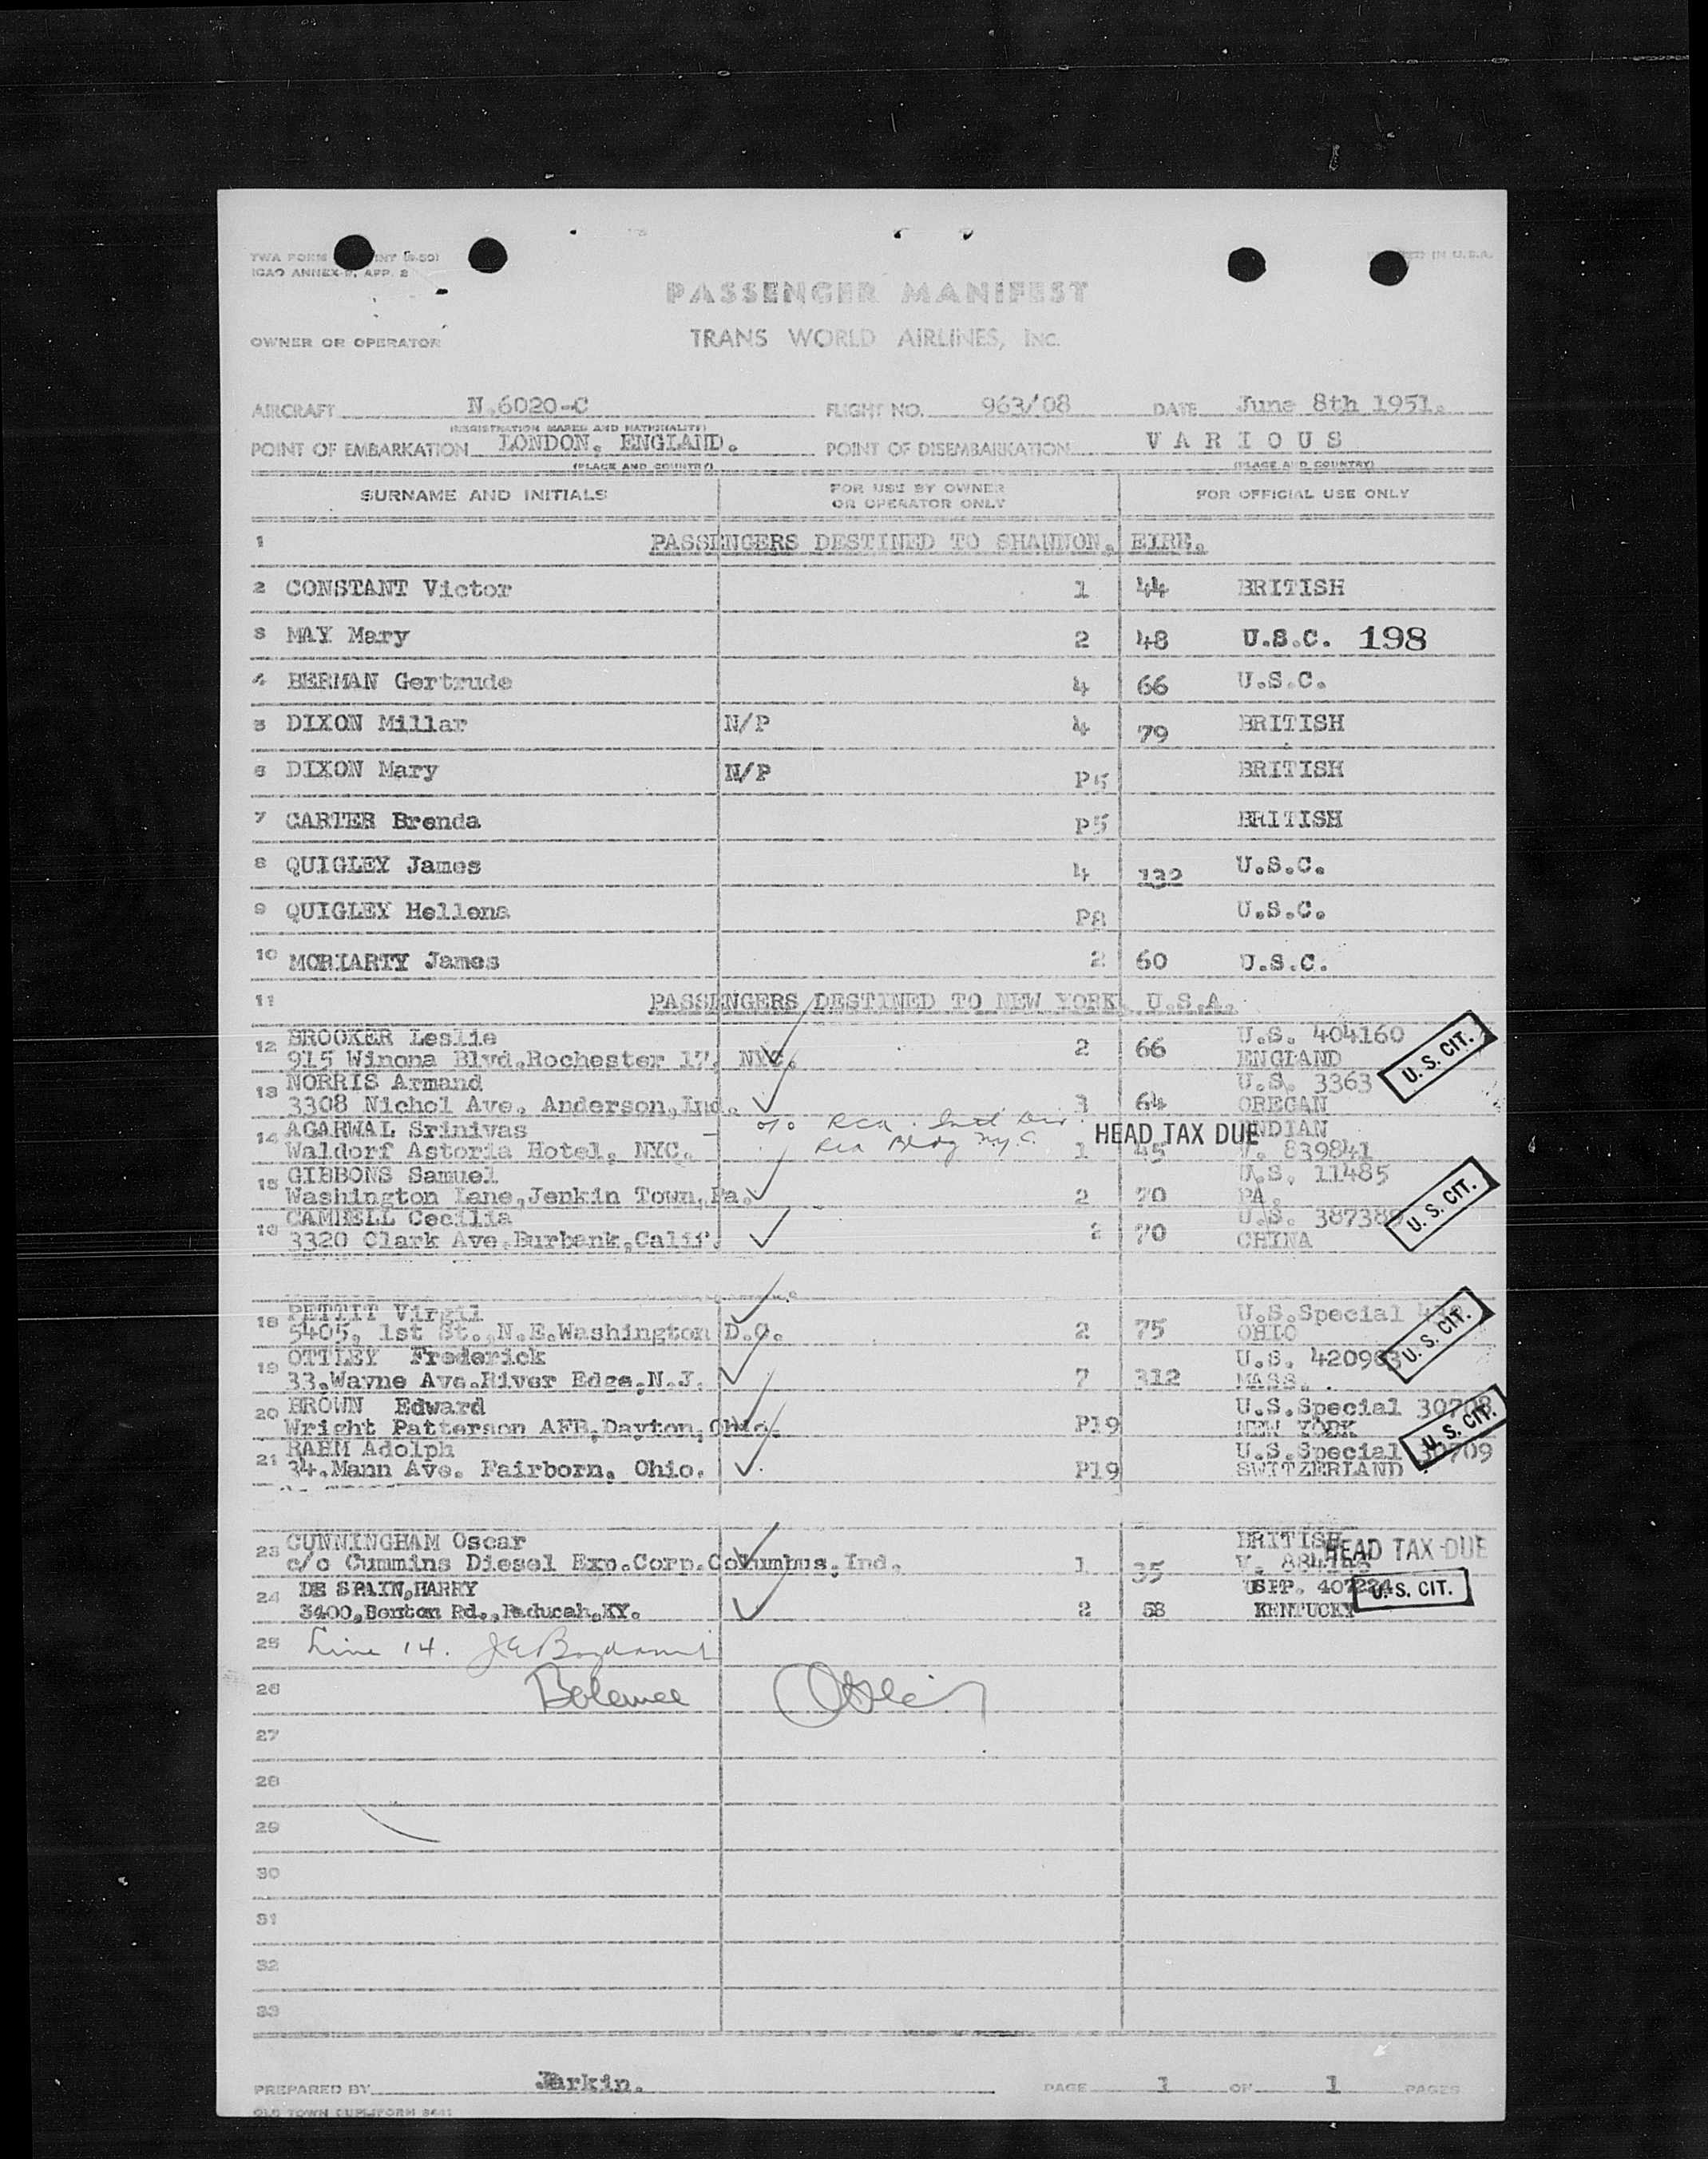 TWA FORM INT (9-50)
ICAO ANNEX-9, APP. 2
IN U.S.A.
PASSENGER MANIFEST
OWNER OR OPERATOR TRANS WORLD AIRLINES, Inc.
AIRCRAFT N.6020-C FLIGHT NO. 963/08 DATE June 8th 1951.
(REGISTRATION MARKS AND NATIONALITY)
POINT OF EMBARKATION LONDON, ENGLAND. POINT OF DISEMBARKATION VARIOUS
(PLACE AND COUNTRY) (PLACE AND COUNTRY)
SURNAME AND INITIALS FOR USE BY OWNER OR OPERATOR ONLY FOR OFFICIAL USE ONLY
1 PASSENGERS DESTINED TO SHANNON, EIRE.
2 CONSTANT Victor 1 44 BRITISH
3 MAY Mary 2 48 U.S.C. 198
4 BERMAN Gertrude 4 66 U.S.C.
5 DIXON Millar N/P 4 79 BRITISH
6 DIXON Mary N/P P5 BRITISH
7 CARTER Brenda P5 BRITISH
8 QUIGLEY James 4 132 U.S.C.
9 QUIGLEY Hellena P8 U.S.C.
10 MORIARTY James 2 60 U.S.C.
11 PASSENGERS DESTINED TO NEW YORK, U.S.A.
12 BROOKER Leslie U.S. 404160
915 Winona Blvd.Rochester 17, NYC. 2 66 ENGLAND U. S. CIT.
13 NORRIS Armand U.S. 3363
3308 Nichol Ave. Anderson, Ind. 3 64 OREGAN
14 AGARWAL Srinivas c/o RCA. Int'l Div. HEAD TAX DUE INDIAN
Waldorf Astoria Hotel, NYC. RCA Bldg N.Y.C. 1 45 V. 839841
15 GIBBONS Samuel U.S. 11485
Washington Lane,Jenkin Town,Pa. 2 70 PA. U. S. CIT.
16 CAMBELL Cecilia U.S. 387389
3320 Clark Ave.Burbank,Calif. 2 70 CHINA
18 PETTIT Virgil U.S.Special
5405, 1st St.,N.E.Washington D.C. 2 75 OHIO U. S. CIT.
19 OTTLEY Frederick U.S. 420963
33.Wayne Ave.River Edge,N.J. 7 312 MASS.
20 BROWN Edward U.S.Special 30708
Wright Patterson AFB,Dayton,Ohio. P19 NEW YORK U. S. CIT.
21 RAHM Adolph U.S.Special 30709
34.Mann Ave. Fairborn, Ohio. P19 SWITZERLAND
23 CUNNINGHAM Oscar BRITISH HEAD TAX DUE
c/o Cummins Diesel Exp.Corp.Columbus,Ind. 1 35
24 DE SPAIN,HARRY USPP. 407224 U. S. CIT.
3400,Benton Rd.,Paducah,KY. 2 58 KENTUCKY
25 Line 14.
26
27
28
29
30
31
32
33
PREPARED BY Jarkin. PAGE 1 OF 1 PAGES
OLD TOWN DUPLIFORM